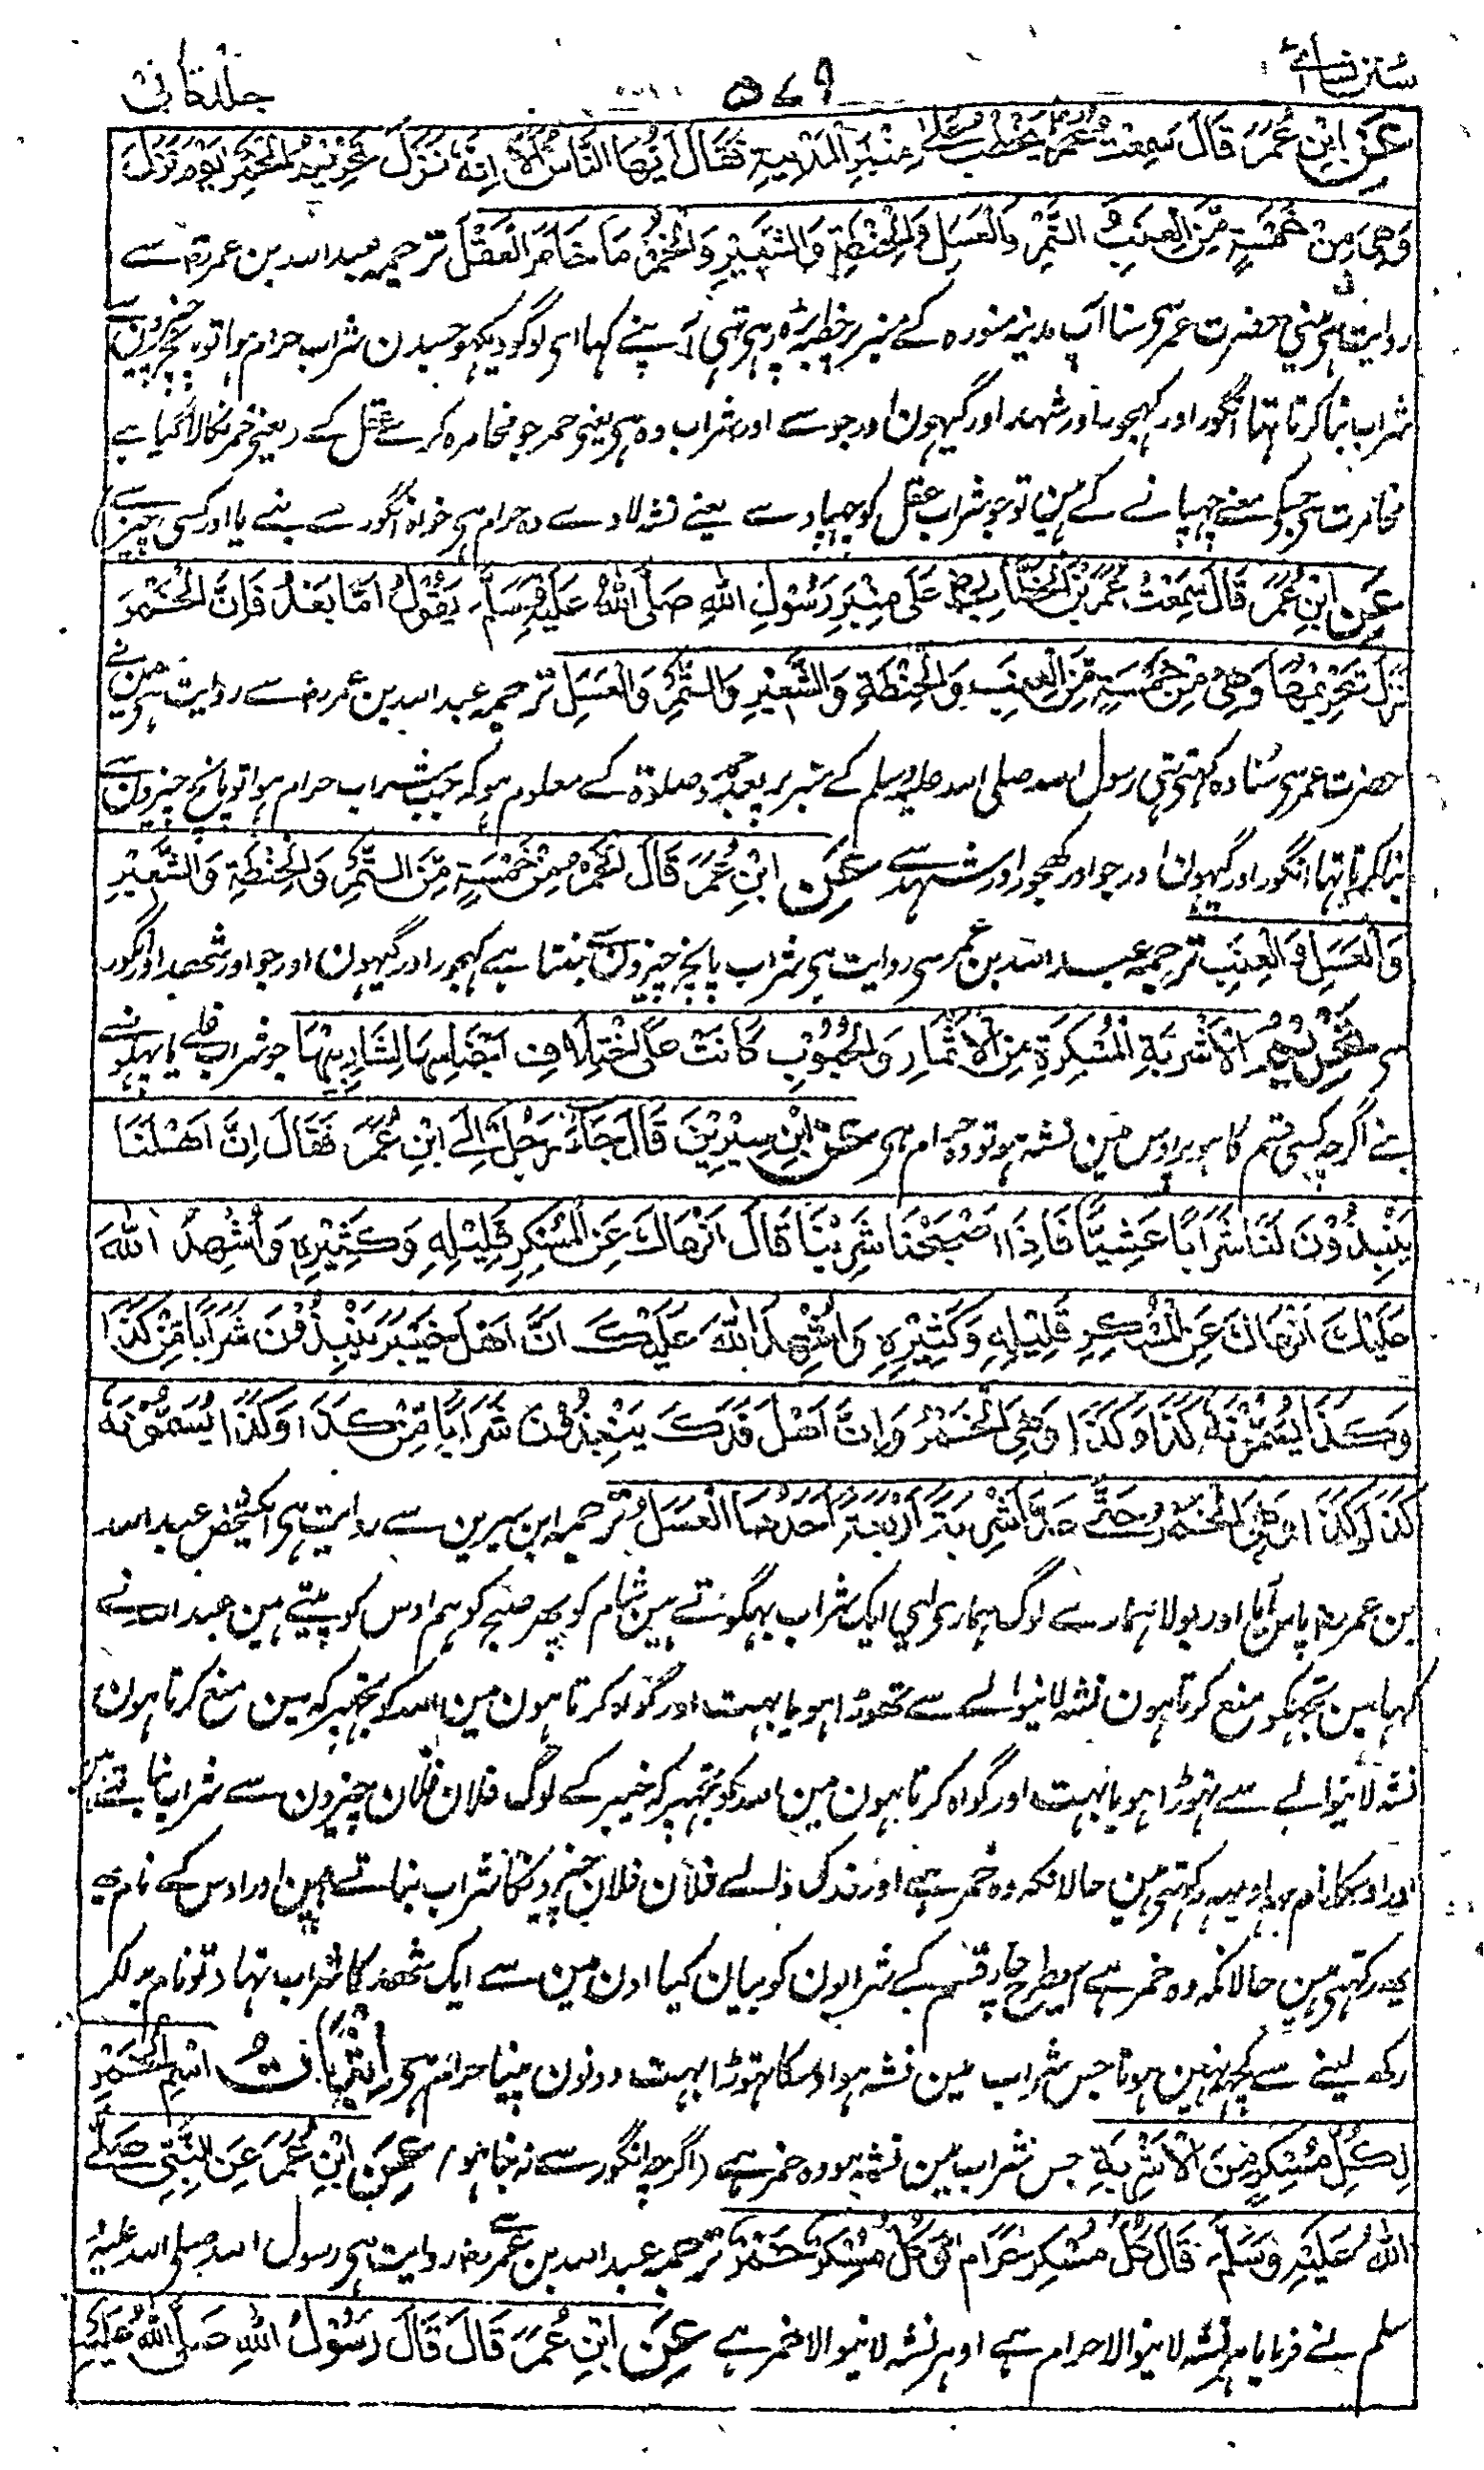 سنن نسائے
۵۷۹
جلد ثانی
عَنِ ابْنِ عُمَرَ قَالَ سَمِعْتُ عُمَرَ يَخْطُبُ عَلٰى مِنْبَرِ الْمَدِيْنَةِ فَقَالَ اَيُّهَا النَّاسُ اَلَا اِنَّهٗ نَزَلَ تَحْرِيْمُ الْخَمْرِ يَوْمَ نَزَلَ
وَهِيَ مِنْ خَمْسَةٍ مِّنَ الْعِنَبِ وَالتَّمْرِ وَالْعَسَلِ وَالْحِنْطَةِ وَالشَّعِيْرِ وَالْخَمْرُ مَا خَامَرَ الْعَقْلَ ترجمہ عبد اللہ بن عمر رضہ سے
روایت ہی مینی حضرت عمر سی سنا آپ مدینہ منورہ کے منبر پر خطبہ پڑہ رہی تہی آپنے کہا ای لوگو دیکہو جسدن شراب حرام ہوا تو پانچ چیزون سے
شراب بنا کرتا تہا انگور اور کہجور اور شہد اور گیہون اور جو سے اور شراب وہ ہی یعنی خمر جو مخامرہ کرے عقل کے (یعنی خمر نکالا گیا ہے
مخامرت سی جسکو معنے چہپانے کے ہین تو جو شراب عقل کو چہپا دے یعنے نشہ لادے وہ حرام ہی خواہ انگور سے بنے یا اور کسی چیز سے)
عَنِ ابْنِ عُمَرَ قَالَ سَمِعْتُ عُمَرَ بْنَ الْخَطَّابِ رض عَلَى مِنْبَرِ رَسُوْلِ اللهِ صَلَّى اللهُ عَلَيْهِ وَسَلَّمَ يَقُوْلُ اَمَّا بَعْدُ فَاِنَّ الْخَمْرَ
نَزَلَ تَحْرِيْمُهَا وَهِيَ مِنْ خَمْسَةٍ مِّنَ الْعِنَبِ وَالْحِنْطَةِ وَالشَّعِيْرِ وَالتَّمْرِ وَالْعَسَلِ ترجمہ عبد اللہ بن عمر رضہ سے روایت ہی مین نے
حضرت عمر سی سُنا وہ کہتی تہی رسول اللہ صلی اللہ علیہ وسلم کے منبر پر بعد حمد و صلاۃ کے معلوم ہو کہ جب شراب حرام ہوا تو پانچ چیزون سے
بنا کرتا تہا انگور اور گیہون اور جو اور کھجور اور شہد سے عَنِ ابْنِ عُمَرَ قَالَ الْخَمْرُ مِنْ خَمْسَةٍ مِّنَ التَّمْرِ وَالْحِنْطَةِ وَالشَّعِيْرِ
وَالْعَسَلِ وَالْعِنَبِ ترجمہ عبد اللہ بن عمر سی روایت ہی شراب پانچ چیزون سے بنتا ہے کہجور اور گیہون اور جو اور شھد اور انگور
سی تَحْرِيْمُ الْاَشْرِبَةِ الْمُسْكِرَةِ مِنَ الْاَثْمَارِ وَالْحُبُوْبِ كَانَتْ عَلَى اخْتِلَافِ اَجْنَاسِهَا لِشَارِبِيْهَا جو شراب غلے یا پہلون سے
بنے اگرچہ کسی قسم کا ہو پر اوس مین نشہ ہو تو وہ حرام ہی عَنِ ابْنِ سِيْرِيْنَ قَالَ جَاءَ رَجُلٌ اِلَى ابْنِ عُمَرَ فَقَالَ اِنَّ اَهْلَنَا
يَنْبِذُوْنَ لَنَا شَرَابًا عَشِيًّا فَاِذَا اَصْبَحْنَا شَرِبْنَا قَالَ اَنْهَاكَ عَنِ الْمُسْكِرِ قَلِيْلِهٖ وَكَثِيْرِهٖ وَاُشْهِدُ اللهَ
عَلَيْكَ اَنْهَاكَ عَنِ الْمُسْكِرِ قَلِيْلِهٖ وَكَثِيْرِهٖ وَاُشْهِدُ اللهَ عَلَيْكَ اَنَّ اَهْلَ خَيْبَرَ يَنْبِذُوْنَ شَرَابًا مِّنْ كَذَا
وَكَذَا يُسَمُّوْنَهٗ كَذَا وَكَذَا وَهِيَ الْخَمْرُ وَاِنَّ اَهْلَ فَدَكَ يَنْبِذُوْنَ شَرَابًا مِّنْ كَذَا وَكَذَا يُسَمُّوْنَهٗ
كَذَا وَكَذَا وَهِيَ الْخَمْرُ حَتّٰى عَدَّ اَشْرِبَةً اَرْبَعَةً اَحَدُهَا الْعَسَلُ ترجمہ ابن سیرین سے روایت ہی ایک شخص عبد اللہ
بن عمر رضہ پاس آیا اور بولا ہمارے لوگ ہماری لیی ایک شراب بہگوتے ہین شام کو پہر صبح کو ہم اوس کو پیتے ہین عبد اللہ نے
کہا مین تجہکو منع کرتا ہون نشہ لانیوالے سے تھوڑا ہو یا بہت اور گواہ کرتا ہون مین اللہ کو تجہپر کہ مین منع کرتا ہون
نشہ لانیوالے سے تہوڑا ہو یا بہت اور گواہ کرتا ہون مین اللہ کو تجہپر کہ خیبر کے لوگ فلان فلان چیزون سے شراب بناتے ہین
اور اوسکا نام یہ اور یہ رکہتی ہین حالانکہ وہ خمر ہے اور فدک والے فلان فلان چیزونکا شراب بناتے ہین اور اوس کے نام یہ
یہ رکہتی ہین حالانکہ وہ خمر ہے اسیطرح چار قسم کے شرابون کو بیان کیا اون مین سے ایک شھد کا شراب تہا (تو نام بدلکر
رکھ لینے سے کچہ نہین ہوتا جس شراب مین نشہ ہو اوسکا تہوڑا بہت دونون پینا حرام ہی) اِثْبَاتُ اسْمِ الْخَمْرِ
لِكُلِّ مُسْكِرٍ مِّنَ الْاَشْرِبَةِ جس شراب مین نشہ ہو وہ خمر ہے (اگرچہ انگور سے نہ بنا ہو) عَنِ ابْنِ عُمَرَ عَنِ النَّبِيِّ صَلَّى
اللهُ عَلَيْهِ وَسَلَّمَ قَالَ كُلُّ مُسْكِرٍ حَرَامٌ وَّكُلُّ مُسْكِرٍ خَمْرٌ ترجمہ عبد اللہ بن عمر رضہ سے روایت ہی رسول اللہ صلی اللہ علیہ
سلم نے فرمایا ہر نشہ لانیوالا حرام ہے اور ہر نشہ لانیوالا خمر ہے عَنِ ابْنِ عُمَرَ قَالَ قَالَ رَسُوْلُ اللهِ صَلَّى اللهُ عَلَيْهِ